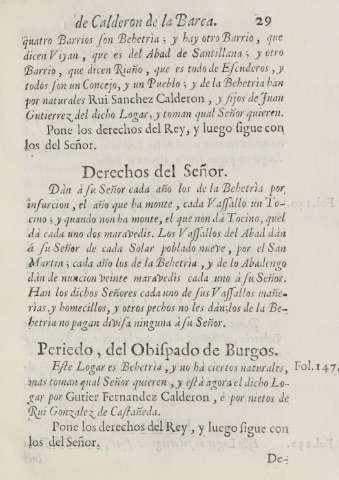 de Calderon de la Barca. 29
quatro Barrios son Behetria; y hay otro Barrio, que
dicen Viyan, que es del Abad de Santillana; y otro
Barrio, que dicen Riaño, que es todo de Escuderos, y
todos son un Concejo, y un Pueblo; y de la Behetria han
por naturales Rui Sanchez Calderon, y fijos de Juan
Gutierrez del dicho Logar, y toman qual Señor quieren.
Pone los derechos del Rey, y luego sigue con
los del Señor.
Derechos del Señor.
Dán à su Señor cada año los de la Behetria por
infurcion, el año que ha monte, cada Vassallo un To-
cino; y quando non ha monte, el que non dá Tocino, quel
dá cada uno dos maravedis. Los Vassallos del Abad dán
à su Señor de cada Solar poblado nueve, por el San
Martin; cada año los de la Behetria, y de lo Abadengo
dán de nuncion veinte maravedis cada uno à su Señor.
Han los dichos Señores cada uno de sus Vassallos mañe-
rias, y homecillos, y otros pechos no les dán; los de la Be-
hetria no pagan divisa ninguna à su Señor.
Periedo, del Obispado de Burgos.
Este Logar es Behetria, y no há ciertos naturales, Fol.147.
mas toman qual Señor quieren, y está agora el dicho Lo-
gar por Gutier Fernandez Calderon, è por nietos de
Rui Gonzalez de Castañeda.
Pone los derechos del Rey, y luego sigue con
los del Señor.
De-